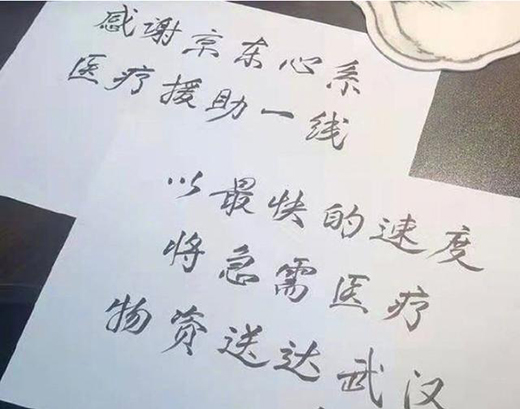 感谢京东心系
医疗援助一线
以最快的速度
将急需医疗
物资送达武汉